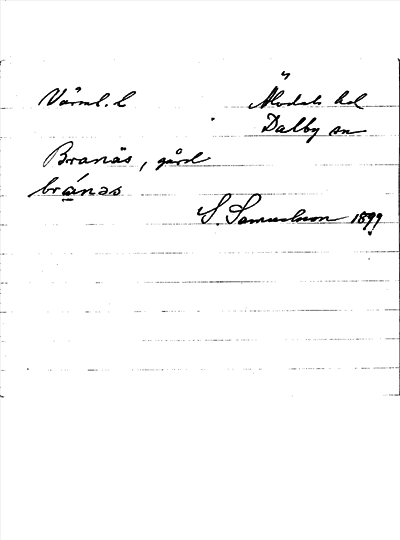 Värml. l
Älvdals hd
Dalby sn
Branäs, gård
bránas
S. Samuelsson 1899